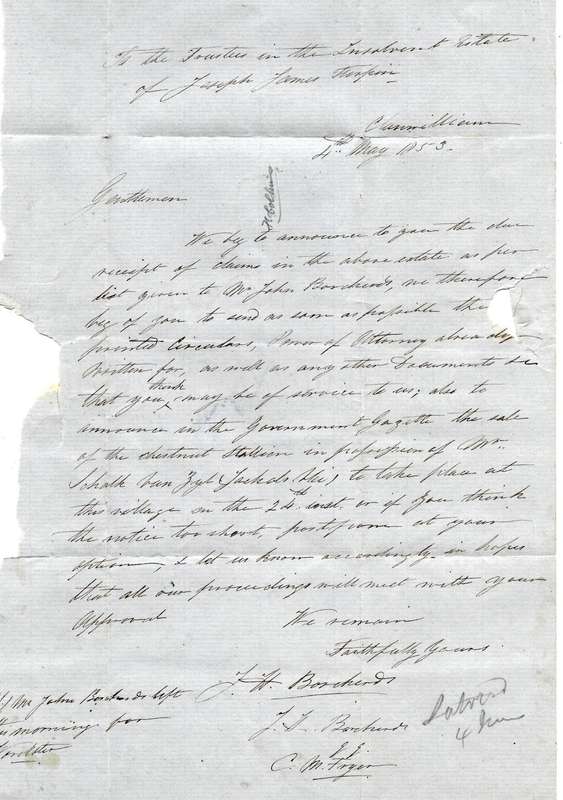 To the Trustees in the Insolvent Estate
of Joseph James Turpin
Clanwilliam
4th May 1853.
Gentlemen
We beg to announce to you the due
receipt of claims in the above estate as per
list given to Mr John Borcherds, we therefore
beg of you to send as soon as possible the
printed Circulars, Power of Attorney already
written for, as well as any other Documents &c
that you think may be of service to us; also to
announce in the Government Gazette the sale
of the chestnut Stallion in possession of Mr.
Schalk van Zyl to take place at
this village on the 24th inst. or if you think
the notice too short, postpone at your
option, & let us know accordingly in hopes
that all our proceedings will meet with your
Approval
We remain
Faithfully Yours.
J. H. Borcherds
J. L. Borcherds
C. M. Fryer
Mr John Borcherds left
morning for
4 June